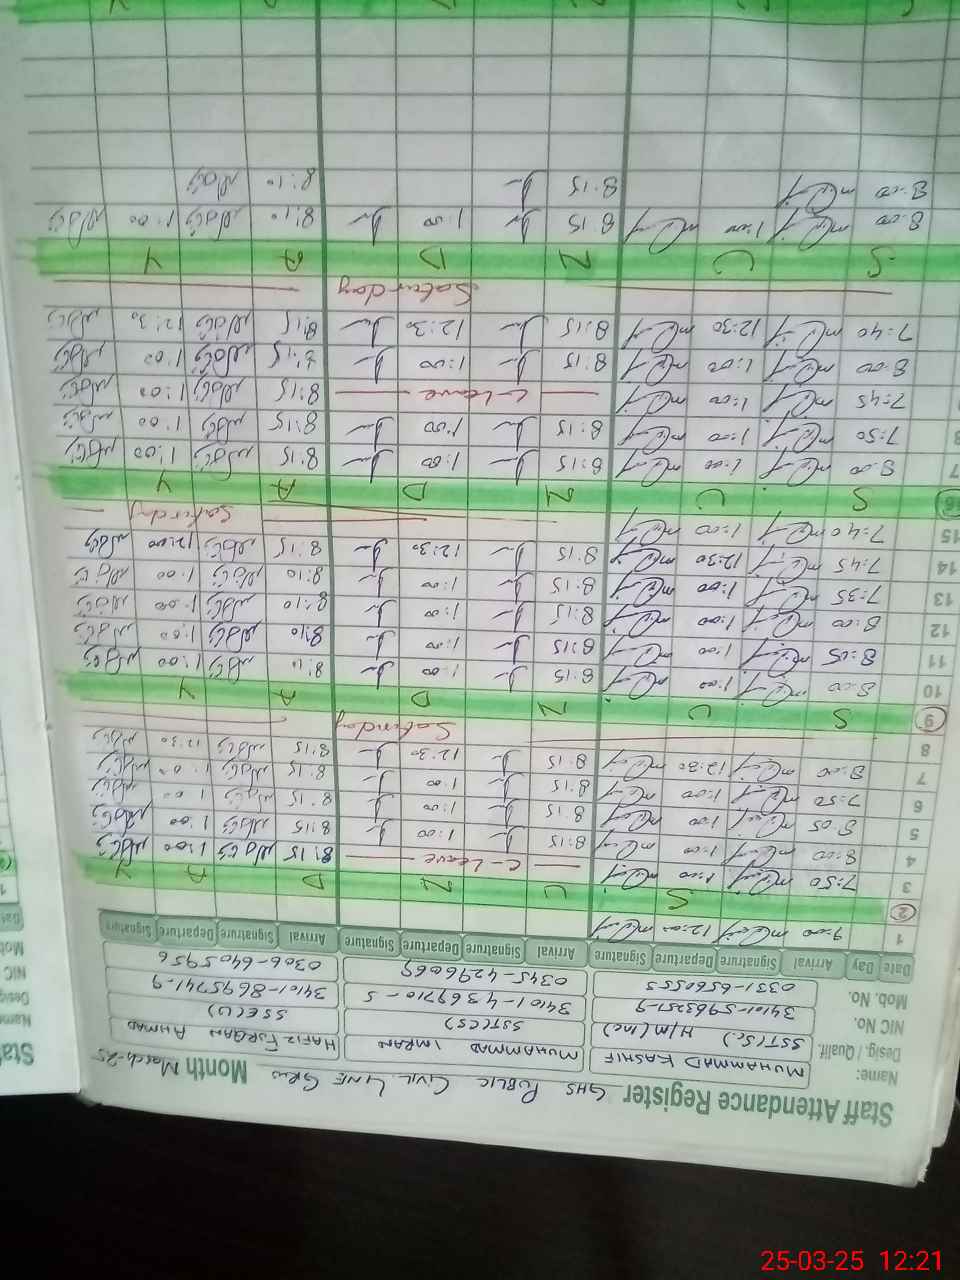 Staff Attendance Register GHS PUBLIC CIVIL LINE GRW Month March-25
Name: MUHAMMAD KASHIF MUHAMMAD IMRAN HAFIZ FURQAN AHMAD
Desig. / Qualif. SST(Sc) H/M(Inc) SST(CS) SSE(U)
NIC No. 34101-5963251-9 34101-4369710-5 34101-8695741-9
Mob. No. 0331-6560553 0345-4296069 0306-6405956
Date Day Arrival Signature Departure Signature Arrival Signature Departure Signature Arrival Signature Departure Signature
1 9:00 12:00
2 S U N D A Y
3 7:50 1:00 C-Leave 8:15 1:00
4 8:00 1:00 8:15 1:00 8:15 1:00
5 8:05 1:00 8:15 1:00 8:15 1:00
6 7:50 1:00 8:15 1:00 8:15 1:00
7 8:00 12:30 8:15 12:30 8:15 12:30
8 Saturday
9 S U N D A Y
10 8:00 1:00 8:15 1:00 8:10 1:00
11 8:05 1:00 8:15 1:00 8:10 1:00
12 8:00 1:00 8:15 1:00 8:10 1:00
13 7:35 1:00 8:15 1:00 8:10 1:00
14 7:45 12:30 8:15 12:30 8:15 12:00
15 7:40 1:00 Saturday
16 S U N D A Y
7 8:00 1:00 8:15 1:00 8:15 1:00
8 7:50 1:00 8:15 1:00 8:15 1:00
7:45 1:00 C-Leave 8:15 1:00
8:00 1:00 8:15 1:00 8:15 1:00
7:40 12:30 8:15 12:30 8:15 12:30
Saturday
S U N D A Y
8:00 1:00 8:15 1:00 8:10 1:00
8:00 8:15 8:10
25-03-25 12:21